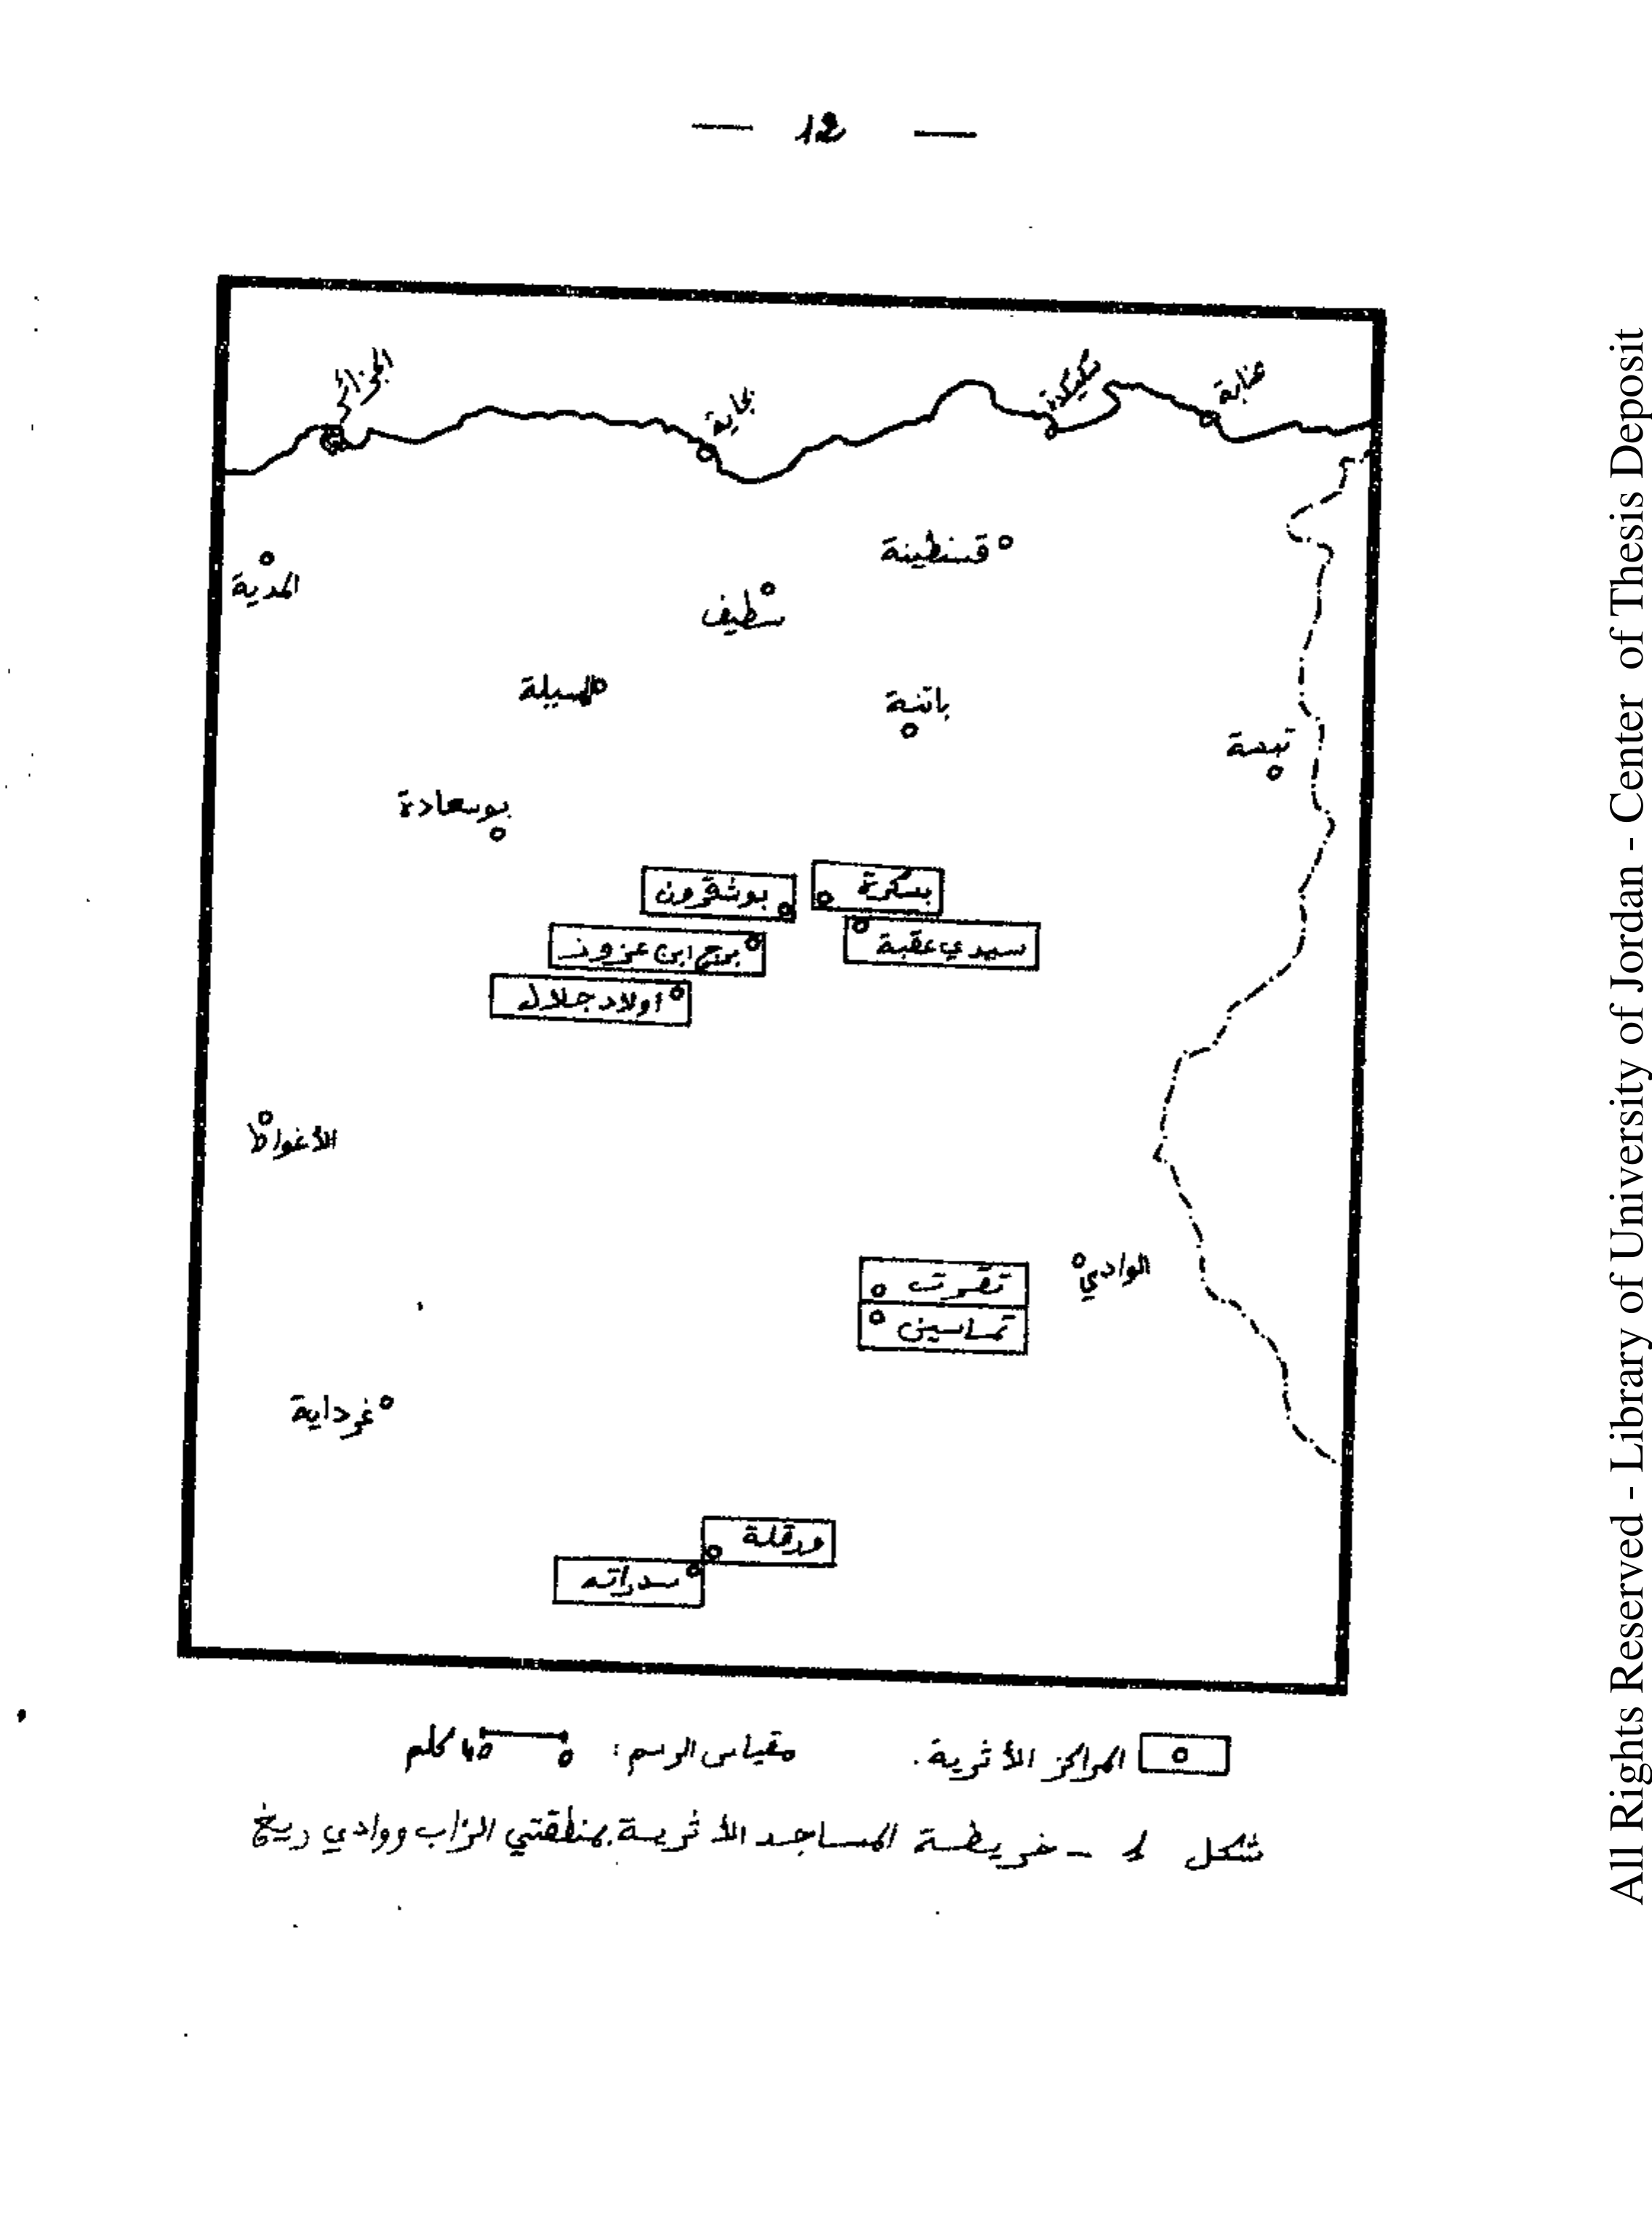 — 12 —
الجزائر
بجاية
سكيكدة
عنابة
قسنطينة
المدية
سطيف
المسيلة
باتنة
تبسة
بوسعادة
بسكرة
بوشقرون
سيدي عقبة
برج ابن عزوز
أولاد جلال
الأغواط
الوادي
تقرت
تماسين
غرداية
ورقلة
سدراته
المراكز الأثرية. مقياس الرسم: 0 كلم
شكل 1 - خريطة المساجد الأثرية بمنطقتي الزاب ووادي ريغ
All Rights Reserved - Library of University of Jordan - Center of Thesis Deposit